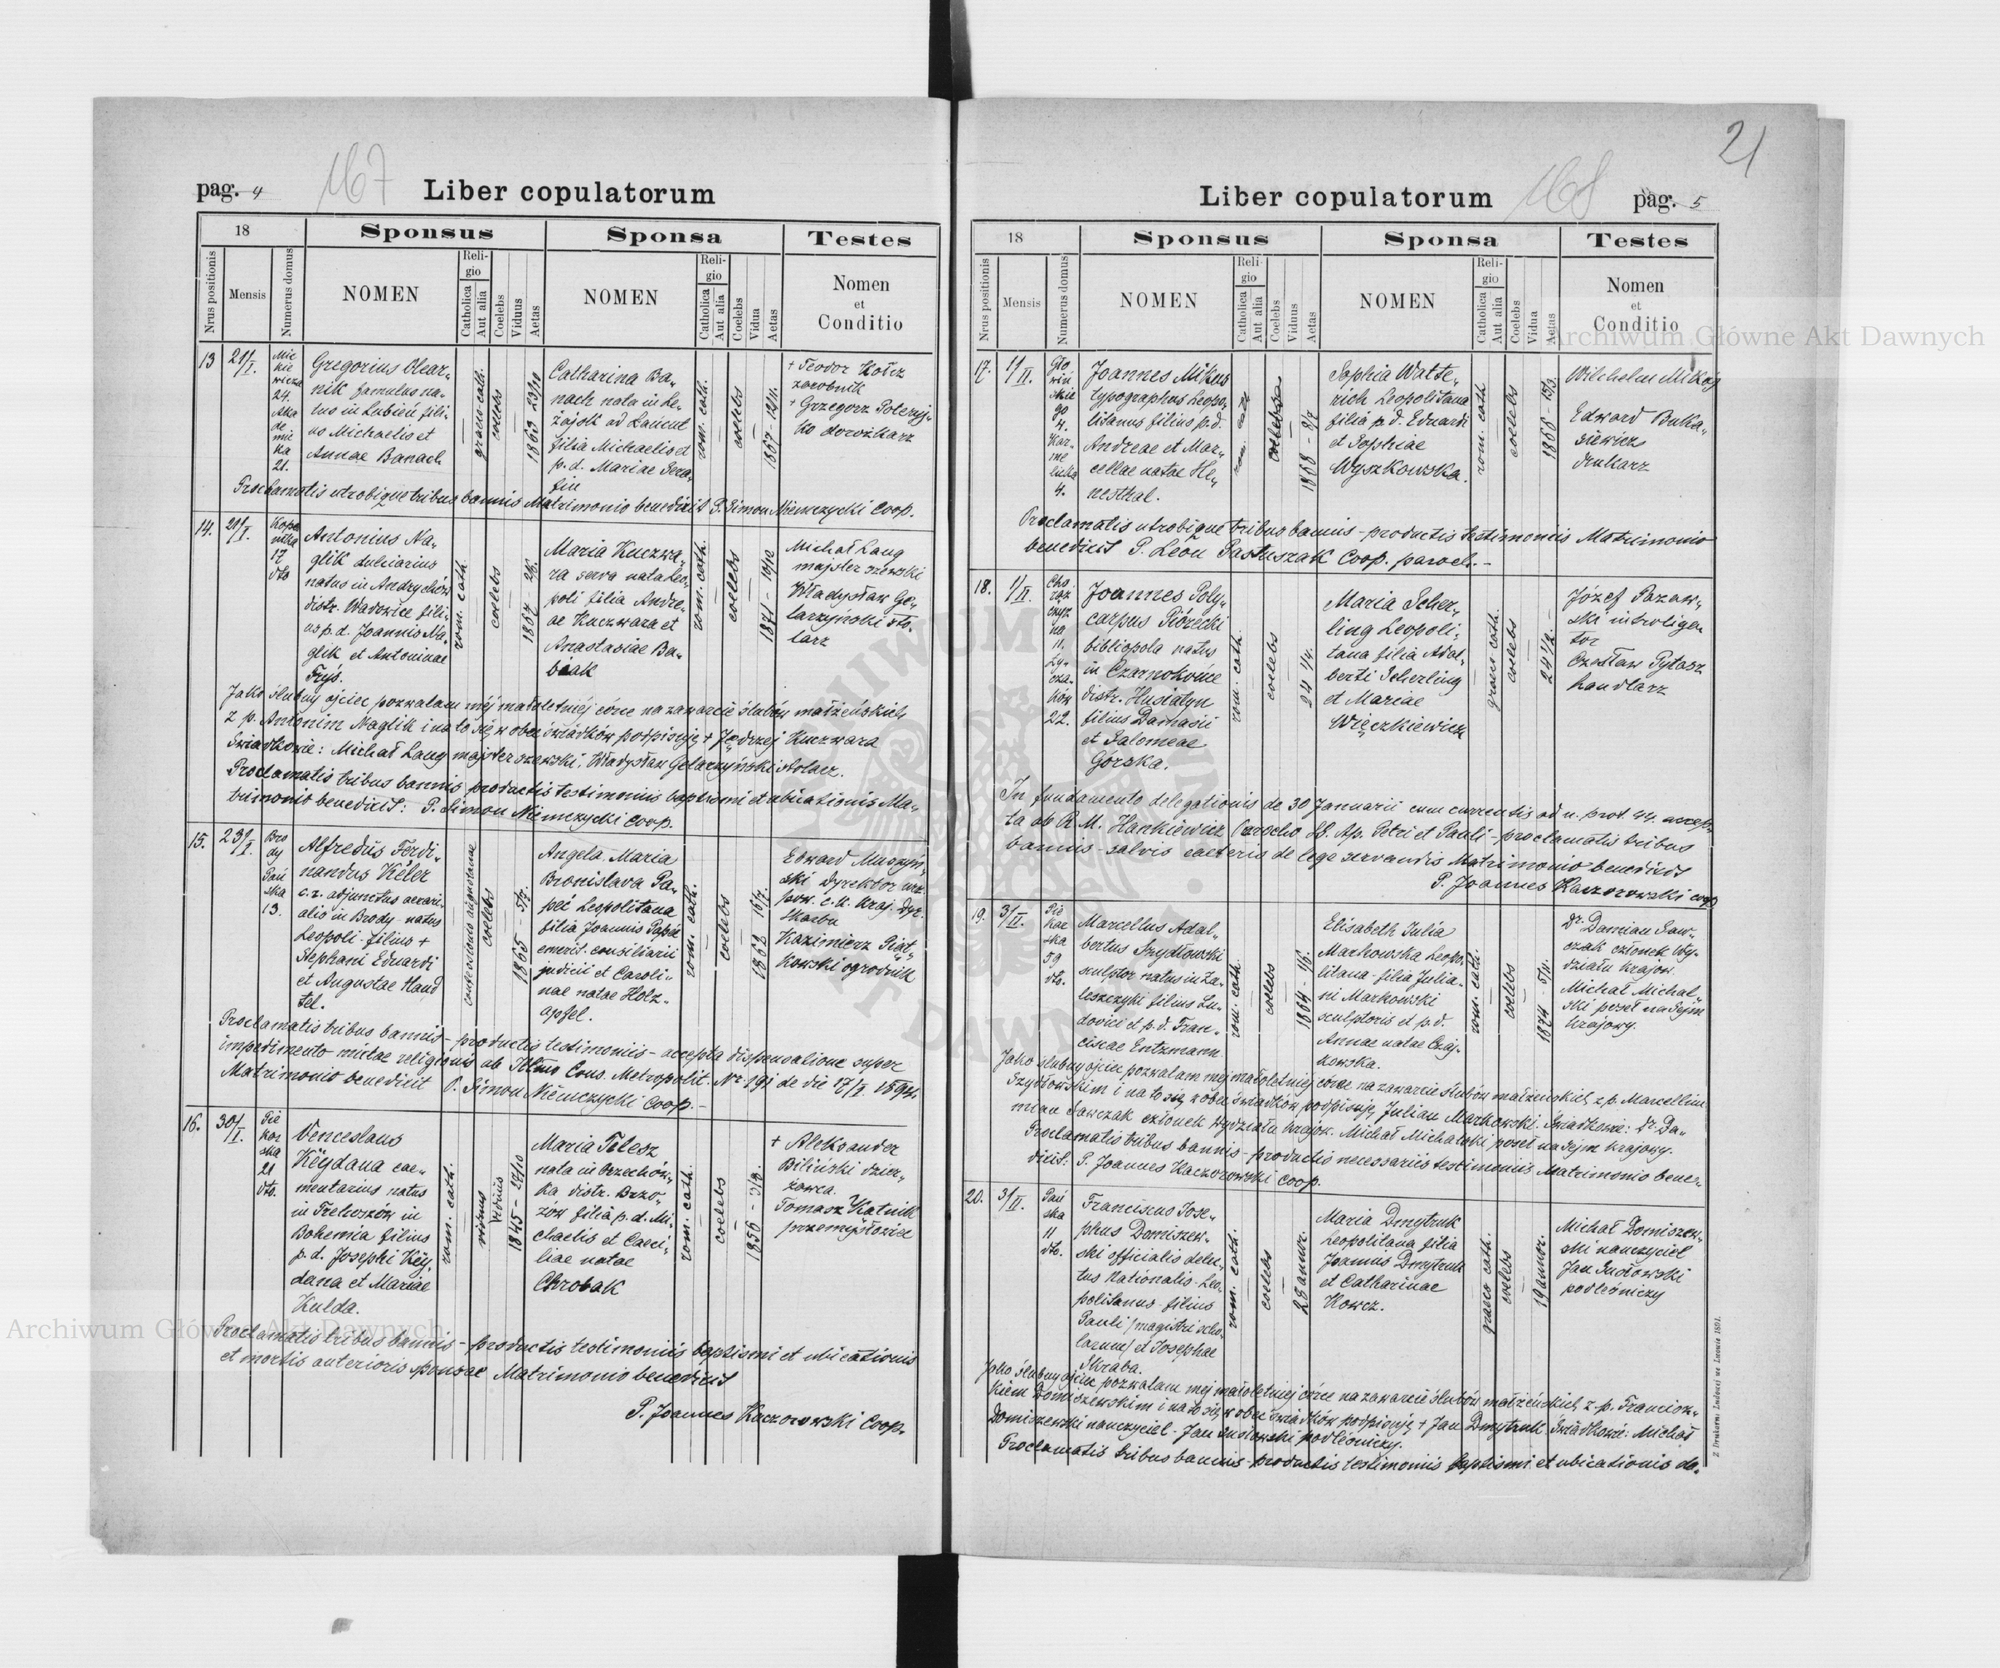 21
pag. 4
167
Liber copulatorum
18
Sponsus
Sponsa
Testes
Nrus positionis
Mensis
Numerus domus
NOMEN
Reli-
gio
Catholica
Aut alia
Coelebs
Viduus
Aetas
NOMEN
Reli-
gio
Catholica
Aut alia
Coelebs
Vidua
Aetas
Nomen
et
Conditio
13
21/I.
Mic
kie
wicza
24.
Aka
de
mic
ka
21.
Gregorius Olear-
nik famulus na-
tus in Lubień fili-
us Michaelis et
Annae Banach
graeco cath.
coelebs
1863 23/10
Catharina Ba-
nach nata in Le-
żajsk ad Łańcut
filia Michaelis et
p. d. Mariae Sera-
fin
rom. cath.
coelebs
1867 - 12/11.
+ Teodor Kołcz
zarobnik
+ Grzegorz
ko dorożkarz
Proclamatis utrobique tribus bannis Matrimonio benedixit P. Simon Niemczycki Coop.
14.
21/I.
Koper
nika
17
dto
Antonius Na-
glik dulciarius
natus in Andrychów
distr. Wadowice fili-
us p. d. Joannis Na-
glik et Antoninae
Fryś.
rom. cath.
coelebs
Maria Kuczwa-
ra serva nata Leo-
poli filia Andre-
ae Kuczwara et
Anastasiae Ba-
biak
rom. cath.
coelebs
1871 - 10/12
Michał Lang
majster szewski
Władysław Ge-
larzyński sto-
larz
Jako ślubny ojciec pozwalam méj małoletniéj córce na zawarcie ślubów małżeńskich
z p. Antonim Naglik i na to się w obec świadków podpisuję + Jędrzej Kuczwara
Świadkowie: Michał Lang majster szewski. Władysław Gelarzyński stolarz.
Proclamatis tribus bannis productis testimoniis baptismi et ubicationis Ma-
trimonio benedixit: P. Simon Niemczycki coop.
15.
23/I.
Bro
dy
Pań
ska
13.
Alfredus Ferdi-
nandus Keler
c. r. adjunctus aerari-
alis in Brody natus
Leopoli - filius +
Stephani Eduardi
et Augustae Händ
tel.
confessionis augustanae
coelebs
1865 - 5/7.
Angela Maria
Bronislava Pa-
peé Leopolitana
filia Joannis Papée
emerit. consiliarii
judicii et Caroli-
nae natae Holz-
apfel.
rom. cath.
coelebs
1868 16/7.
Edward Muszyń-
ski dyrektor urz.
pom. c. k. kraj. dyr.
skarbu
Kazimierz Piąt-
kowski ogrodnik
Proclamatis tribus bannis - productis testimoniis - accepta dispensatione super
impedimento mixtae religionis ab Illmo Cons. Metropolit. Nr. 191 de die 17/I 1894.
Matrimonio benedixit P. Simon Niemczycki coop. -
16.
30/I.
Pie
kar
ska
21
dto.
Venceslaus
Këydana cae-
mentarius natus
in Trehoszów in
Bohemia filius
p. d. Josephi Këy-
dana et Mariae
Kulda.
rom. cath.
viduus
1845 - 24/10
Maria Telesz
nata in Orzechów-
ka distr. Brzo-
zow filia p. d. Mi-
chaelis et Caeci-
liae natae
Chrobak
rom. cath.
coelebs
+ Aleksander
Biliński dzier-
żawca.
Tomasz Kutnik
przemysłowiec
Proclamatis tribus bannis - productis testimoniis baptismi et ubicationis
et mortis anterioris sponsae Matrimonio benedixit
P. Joannes Kaczorowski Coop.
Liber copulatorum
168
pag. 5
18
Sponsus
Sponsa
Testes
Nrus positionis
Mensis
Numerus domus
NOMEN
Reli-
gio
Catholica
Aut alia
Coelebs
Viduus
Aetas
NOMEN
Reli-
gio
Catholica
Aut alia
Coelebs
Vidua
Aetas
Nomen
et
Conditio
17.
1/II.
Gło
wiń
skie
go
4.
Kar
me
licka
4.
Joannes Mikus
typographus Leopo-
litanus filius p. d.
Andreae et Mar-
cellae natae He-
nesthal.
rom. cath
coelebs
1868 - 8/7
Sophia Watte-
rich Leopolitana
filia p. d. Eduardi
et Sophiae
Wyszkowska.
rom. cath
coelebs
1868 - 15/3.
Wilhelm Mikos
Edward Buka-
siewicz
drukarz
Proclamatis utrobique tribus bannis - productis testimoniis Matrimonio
benedixit P. Leon Pastuszak Coop. paroch. -
18.
1/II.
Cho
rąż
czyz
na
11.
Ły-
cza-
ków
22.
Joannes Poly-
carpus Piórecki
bibliopola natus
in Czarnokońce
distr. Husiatyn
filius Damasii
et Salomeae
Górska.
rom. cath.
coelebs
24 1/4.
Maria Scher-
ling Leopoli-
tana filia Adal-
berti Scherling
et Mariae
Więczkiewicz
graeco cath.
coelebs
24 1/2.
Józef Pazow-
ski introliga
tor
Czesław Pytasz
handlarz
In fundamento delegationis de 30 Januarii cum currentis ad n. prot. 44. accep-
ta ab R. M. Hankiewicz Parocho SS. Ap. Petri et Pauli - proclamatis tribus
bannis - salvis caeteris de lege servandis Matrimonio benedixit
P. Joannes Kaczorowski coop
19.
3/II.
Pie
kar
ska
59
dto.
Marcellus Adal-
bertus Szydłowski
sculptor natus in Za-
leszczyki filius Lu-
dovici et p. d. Fran-
ciscae Entzmann
rom. cath.
coelebs
1864 - 1/6.
Elisabeth Julia
Markowska Leopo-
litana - filia Julia-
ni Markowski
sculptoris et p. d.
Annae natae Czaj-
kowska.
rom. cath.
coelebs
1874 5/11.
Dr. Damian Saw-
czak członek Wy-
działu krajow.
Michał Michal-
ski poseł na Sejm
krajowy.
Jako ślubny ojciec pozwalam mej małoletniej córce na zawarcie ślubów małżeńskich z p. Marcellim
Szydłowskim i na to się w obec świadków podpisuję Julian Markowski. Świadkowie: Dr. Da-
mian Sawczak członek Wydziału krajow. Michał Michalski poseł na Sejm krajowy.
Proclamatis tribus bannis - productis necessariis testimoniis Matrimonio bene-
dixit: P. Joannes Kaczorowski coop.
20.
3/II.
Pań
ska
11
dto.
Franciscus Jose-
phus Domiszew-
ski officialis
Nationalis - Leo-
politanus - filius
Pauli /magistri scho-
larum/ et Josephae
Skraba.
rom. cath.
coelebs
28 annor.
Maria Dmytruk
Leopolitana filia
Joannis Dmytruk
et Catharinae
Kowcz.
graeco cath.
coelebs
19 annor.
Michał Domiszew-
ski nauczyciel
Jan Gudowski
podleśniczy
Jako ślubny ojciec pozwalam mej małoletniej córce na zawarcie ślubów małżeńskich z p. Francisz-
kiem Domiszewskim i na to się w obec świadków podpisuję + Jan Dmytruk Świadkowie: Michał
Domiszewski nauczyciel - Jan Gudowski podleśniczy.
Proclamatis tribus bannis - productis testimoniis baptismi et ubicationis de-
Z Drukarni Ludowej we Lwowie 1891.
Archiwum Główne Akt Dawnych
Archiwum Główne Akt Dawnych